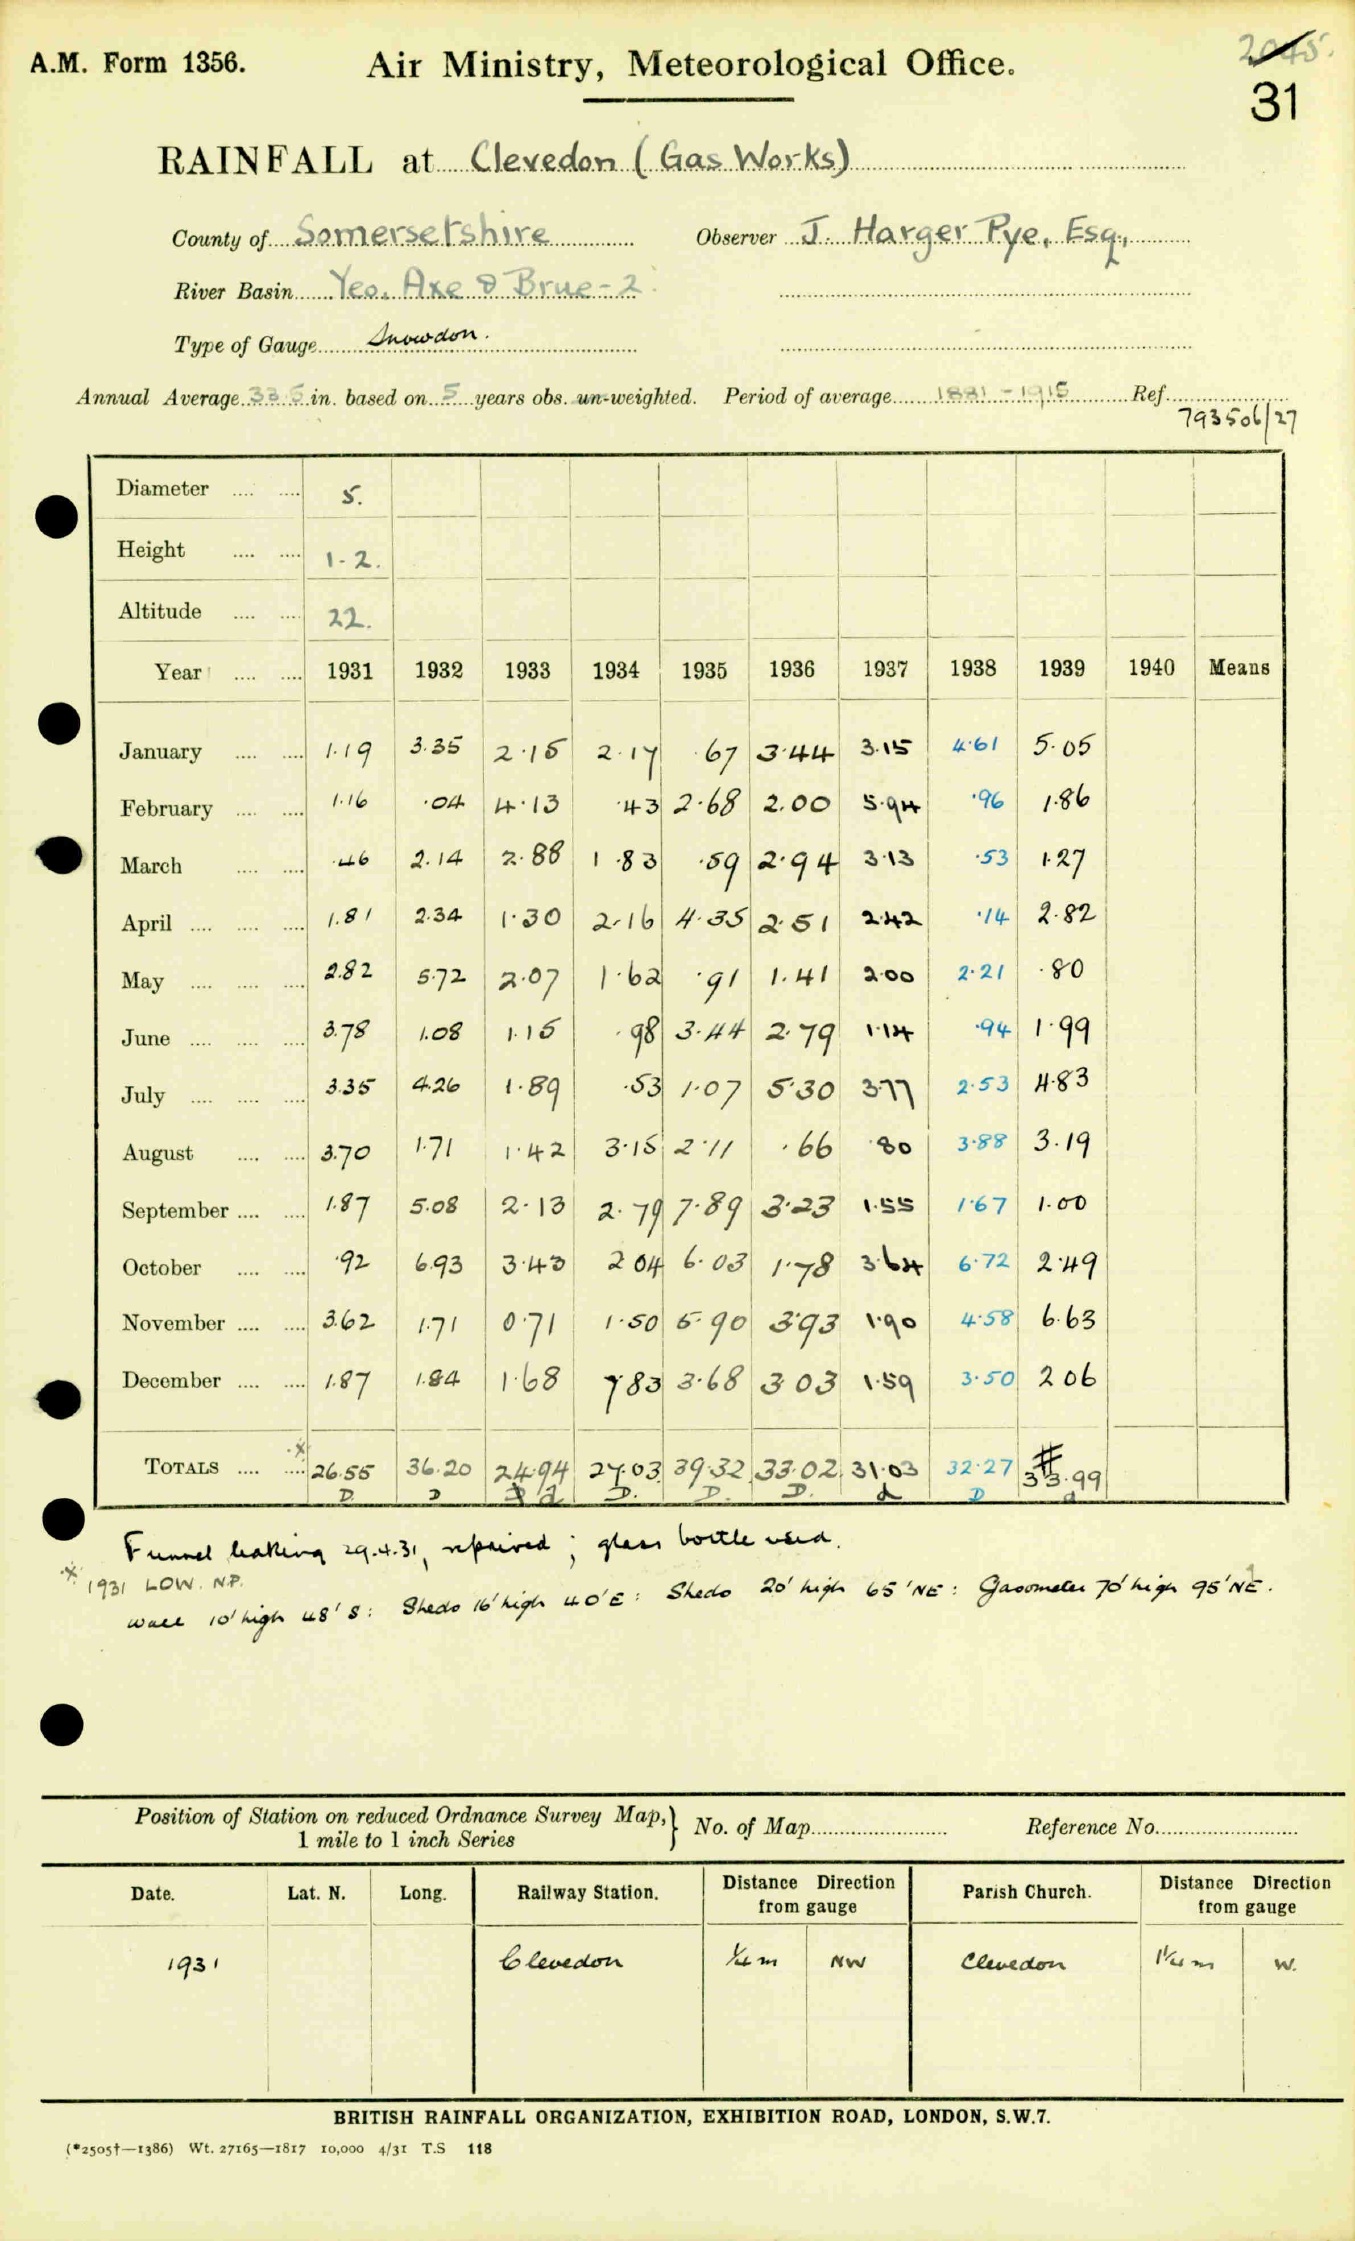 A.M. Form 1356.
Air Ministry, Meteorological Office.
2045.
31
RAINFALL at Clevedon (Gas Works)
County of Somersetshire Observer J. Harger Pye, Esq.,
River Basin Yeo, Axe & Brue - 2
Type of Gauge Snowdon.
Annual Average 33.5 in. based on 5 years obs. un-weighted. Period of average 1881 - 1915 Ref.
793506/27
Diameter .... .... 5.
Height .... .... 1-2.
Altitude .... .... 22.
Year .... .... 1931 1932 1933 1934 1935 1936 1937 1938 1939 1940 Means
January .... .... 1.19 3.35 2.15 2.17 .67 3.44 3.15 4.61 5.05
February .... .... 1.16 .04 4.13 .43 2.68 2.00 5.94 .96 1.86
March .... .... .46 2.14 2.88 1.83 .59 2.94 3.13 .53 1.27
April .... .... .... 1.81 2.34 1.30 2.16 4.35 2.51 2.42 .14 2.82
May .... .... .... 2.82 5.72 2.07 1.62 .91 1.41 2.00 2.21 .80
June .... .... .... 3.78 1.08 1.15 .98 3.44 2.79 1.14 .94 1.99
July .... .... .... 3.35 4.26 1.89 .53 1.07 5.30 3.77 2.53 4.83
August .... .... 3.70 1.71 1.42 3.15 2.11 .66 .80 3.88 3.19
September .... .... 1.87 5.08 2.13 2.79 7.89 3.23 1.55 1.67 1.00
October .... .... .92 6.93 3.43 2 04 6.03 1.78 3.64 6.72 2.49
November .... .... 3.62 1.71 0.71 1.50 5.90 3.93 1.90 4.58 6.63
December .... .... 1.87 1.84 1.68 7 83 3.68 3 03 1.59 3.50 2 06
TOTALS .... .... 26.55 36.20 24.94 27.03 39.32 33.02 31.03 32.27 33.99
D. D D d D. D. D. d D d
Funnel leaking 29.4.31, repaired ; glass bottle used.
1931 LOW. N.P.
Wall 10' high 48' S : Sheds 16' high 40' E : Sheds 20' high 65' NE : Gasometer 70' high 95' NE.
Position of Station on reduced Ordnance Survey Map, 1 mile to 1 inch Series } No. of Map Reference No.
Date. Lat. N. Long. Railway Station. Distance Direction from gauge Parish Church. Distance Direction from gauge
1931 Clevedon ¼ m NW Clevedon 1¼ m W.
BRITISH RAINFALL ORGANIZATION, EXHIBITION ROAD, LONDON, S.W.7.
(*2505†—1386) Wt. 27165—1817 10,000 4/31 T.S 118